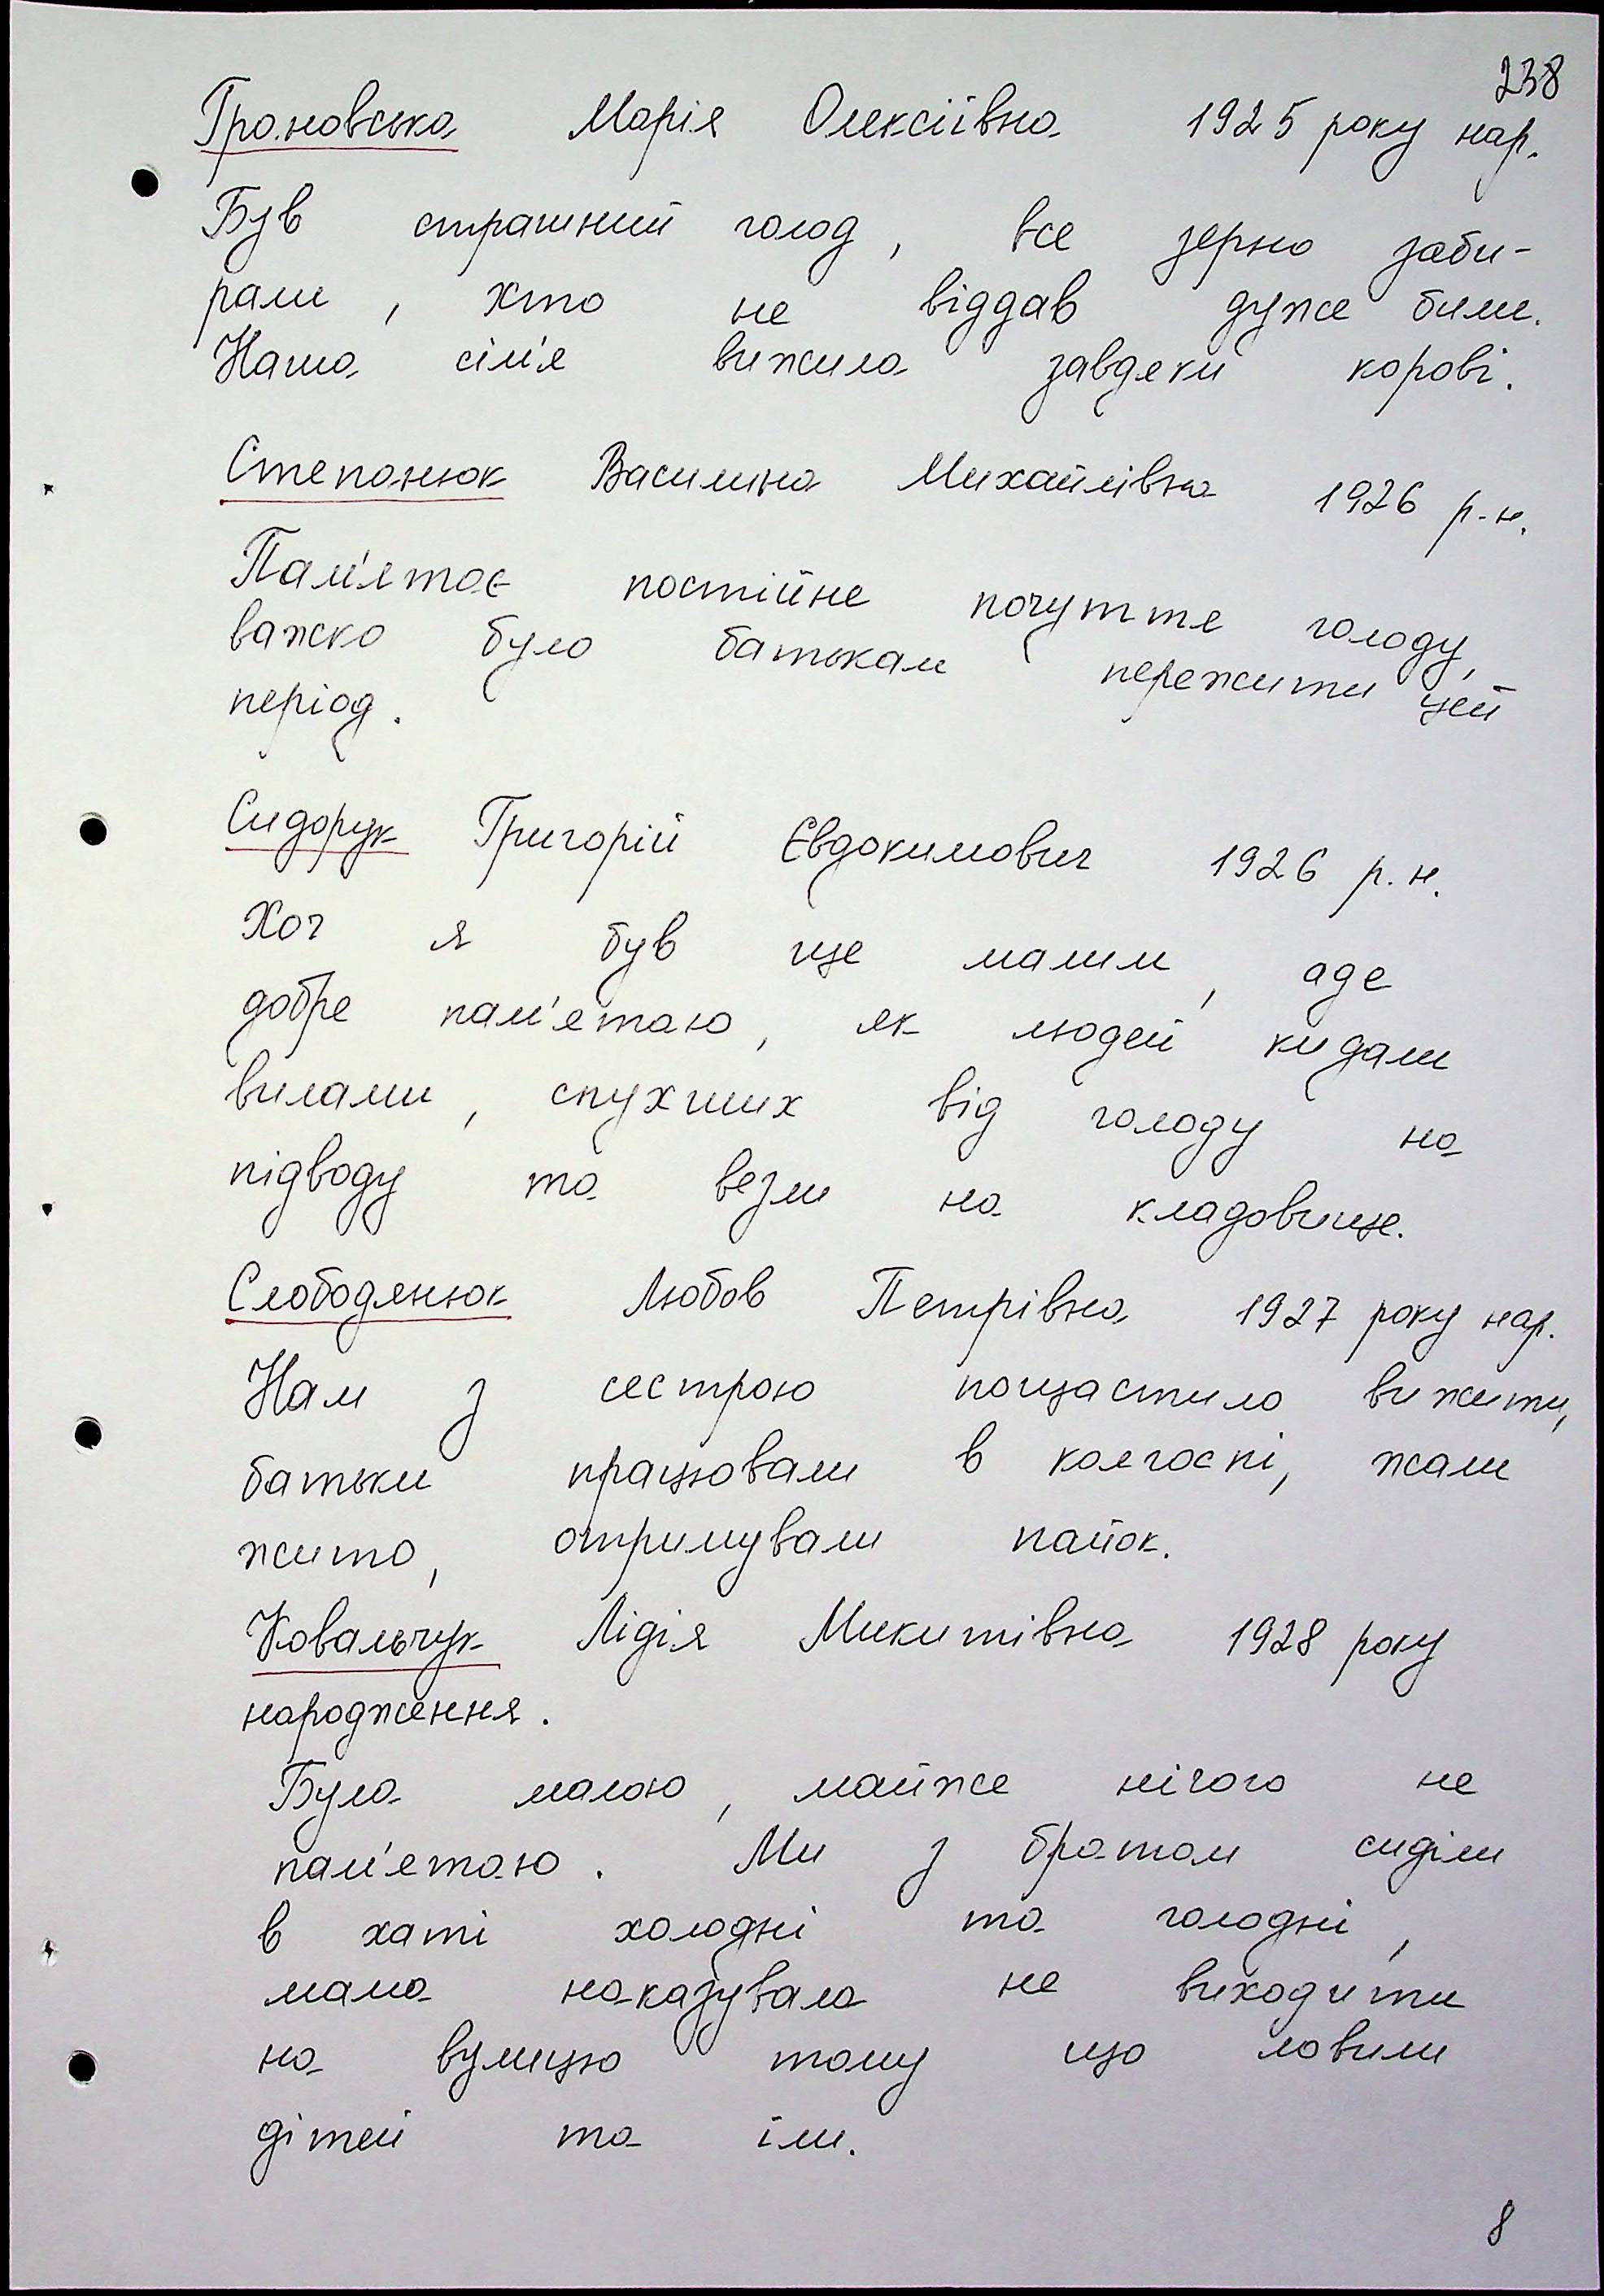 238
Грановська Марія Олексіївна 1925 року нар.
Був страшний голод, все зерно заби-
рали, хто не віддав дуже били.
Наша сім'я вижила завдяки корові.
Степанюк Василина Михайлівна 1926 р.н.
Пам'ятає постійне почуття голоду,
важко було батькам пережити цей
період.
Сидорук Григорій Євдокимович 1926 р.н.
Хоч я був ще малим, аде
добре пам'ятаю, як людей кидали
вилами, спухших від голоду на
підводу та везли на кладовище.
Слободянюк Любов Петрівна 1927 року нар.
Нам з сестрою пощастило вижити,
батьки працювали в колгоспі, жали
жито, отримували пайок.
Ковальчук Лідія Микитівна 1928 року
народження.
Була малою, майже нічого не
пам'ятаю. Ми з братом сиділи
в хаті холодні та голодні,
мама наказувала не виходити
на вулицю тому що ловили
дітей та їли.
8